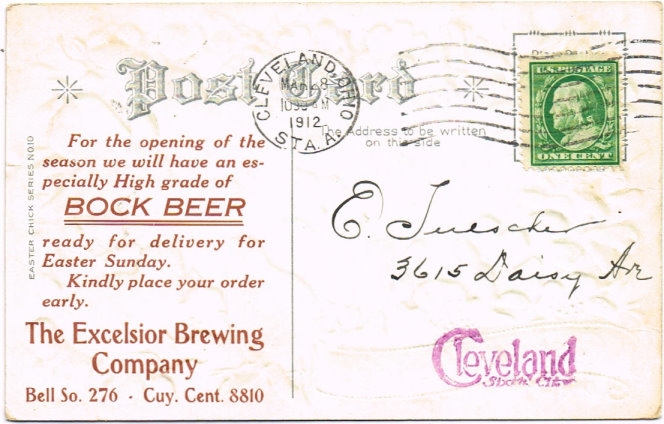 Post Card
CLEVELAND, OHIO
1912
STA. A.
U.S. POSTAGE
ONE CENT
The Address to be written
on this side
EASTER CHICK SERIES NO 10
For the opening of the
season we will have an es-
pecially High grade of
BOCK BEER
ready for delivery for
Easter Sunday.
Kindly place your order
early.
The Excelsior Brewing
Company
Bell So. 276 - Cuy. Cent. 8810
E. Tuescher
3615 Daisy Av
Cleveland
Sixth City